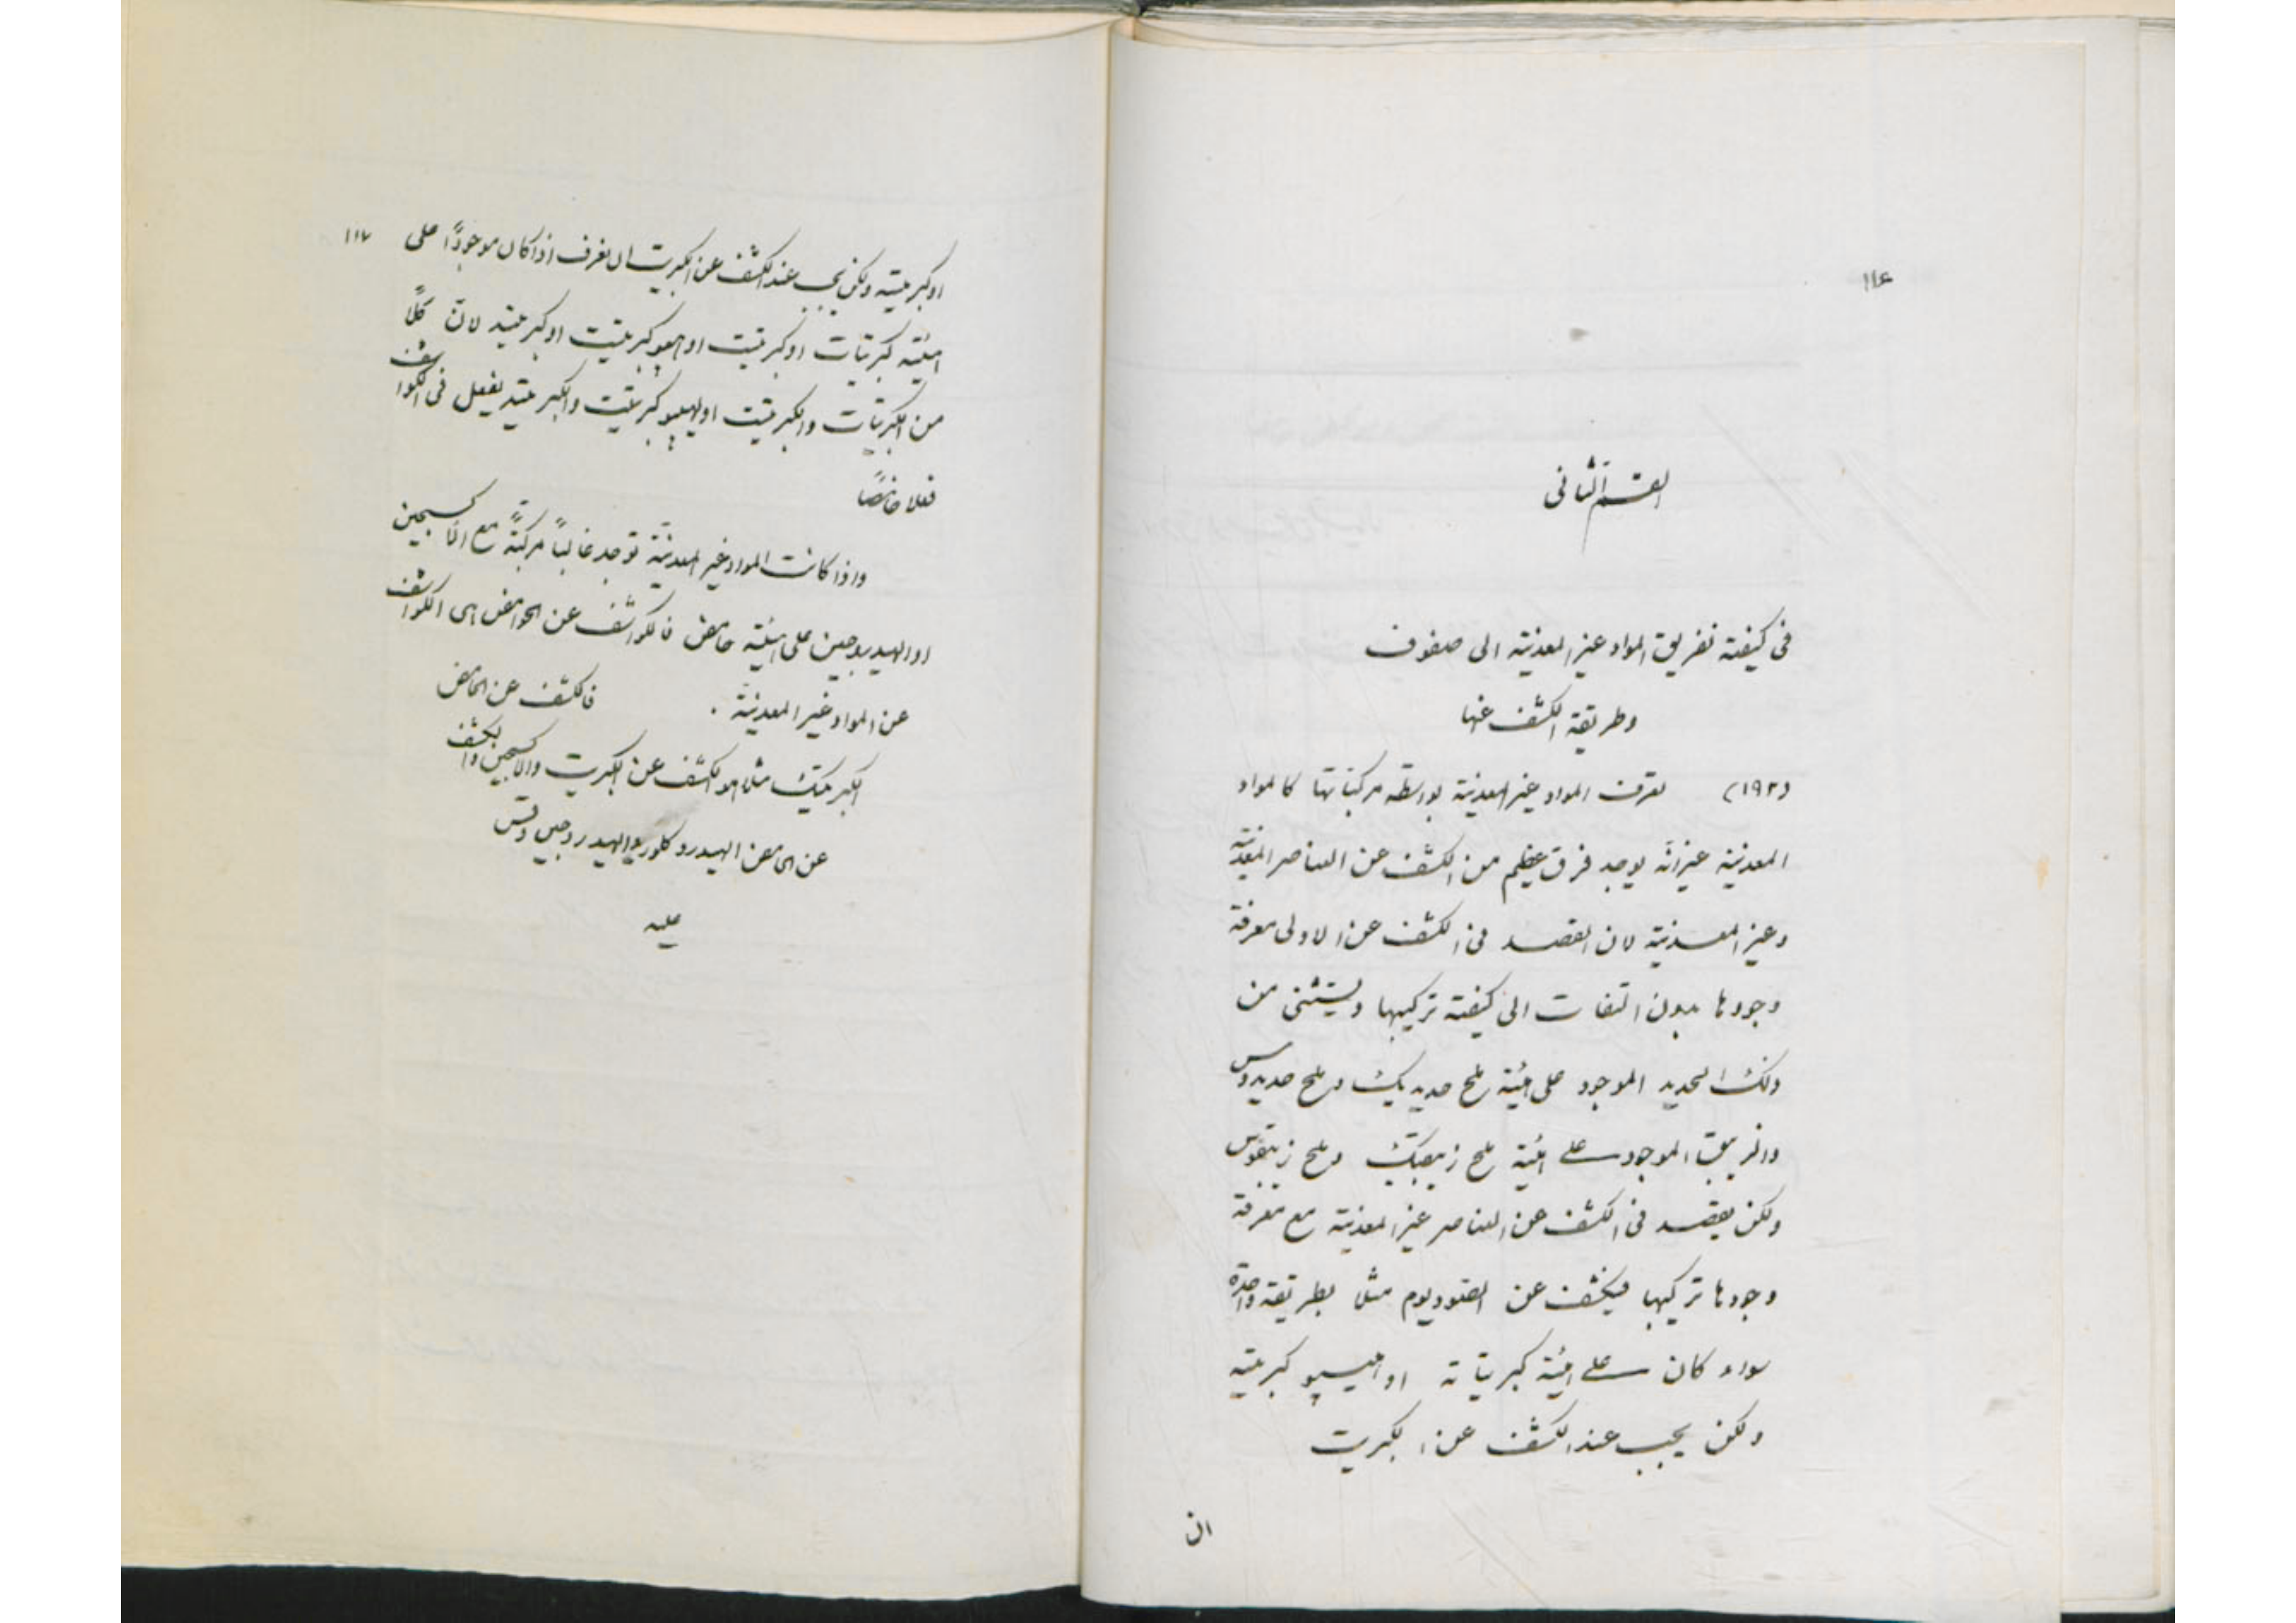 ١١٤
القسم الثانى
فى كيفية تفريق المواد غير المعدنية الى صفوف
وطريقة الكشف عنها
(١٩٢) تعرف المواد غير المعدنية بواسطة مركباتها كالمواد
المعدنية غير انه يوجد فرق عظيم من الكشف عن العناصر المعدنية
وغير المعدنية لان القصد فى الكشف عن الاولى معرفة
وجودها بدون التفات الى كيفية تركيبها ويستثنى من
ذلك الحديد الموجود على هيئة ملح حديديك وملح حديدوس
والزيبق الموجود على هيئة ملح زيبقيك وملح زيبقوس
ولكن يقصد فى الكشف عن العناصر غير المعدنية مع معرفة
وجودها تركيبها فيكشف عن الصوديوم مثلا بطريقة واحدة
سواء كان على هيئة كبريتاته او هيپوكبريتيه
ولكن يجب عند الكشف عن الكبريت
ان
١١٧
اوكبريتيه ولكن يجب عند الكشف عن الكبريت ان نعرف اذا كان موجودًا على
هيئة كبريتات اوكبريتيت او هيپوكبريتيت اوكبريتيد لان كلًا
من الكبريتات والكبريتيت او الهيپوكبريتيت والكبريتيد يفعل فى الكواشف
فعلا خاصًا
واذا كانت المواد غير المعدنية توجد غالبًا مركبةً مع الاكسجين
او الهيدروجين على هيئة حامض فالكواشف عن الحوامض هى الكواشف
عن المواد غير المعدنية . فالكشف عن الحامض
الكبريتيك مثلا هو الكشف عن الكبريت والاكسجين والكشف
عن الحامض الهيدروكلوريك الهيدروجين وقس
عليه